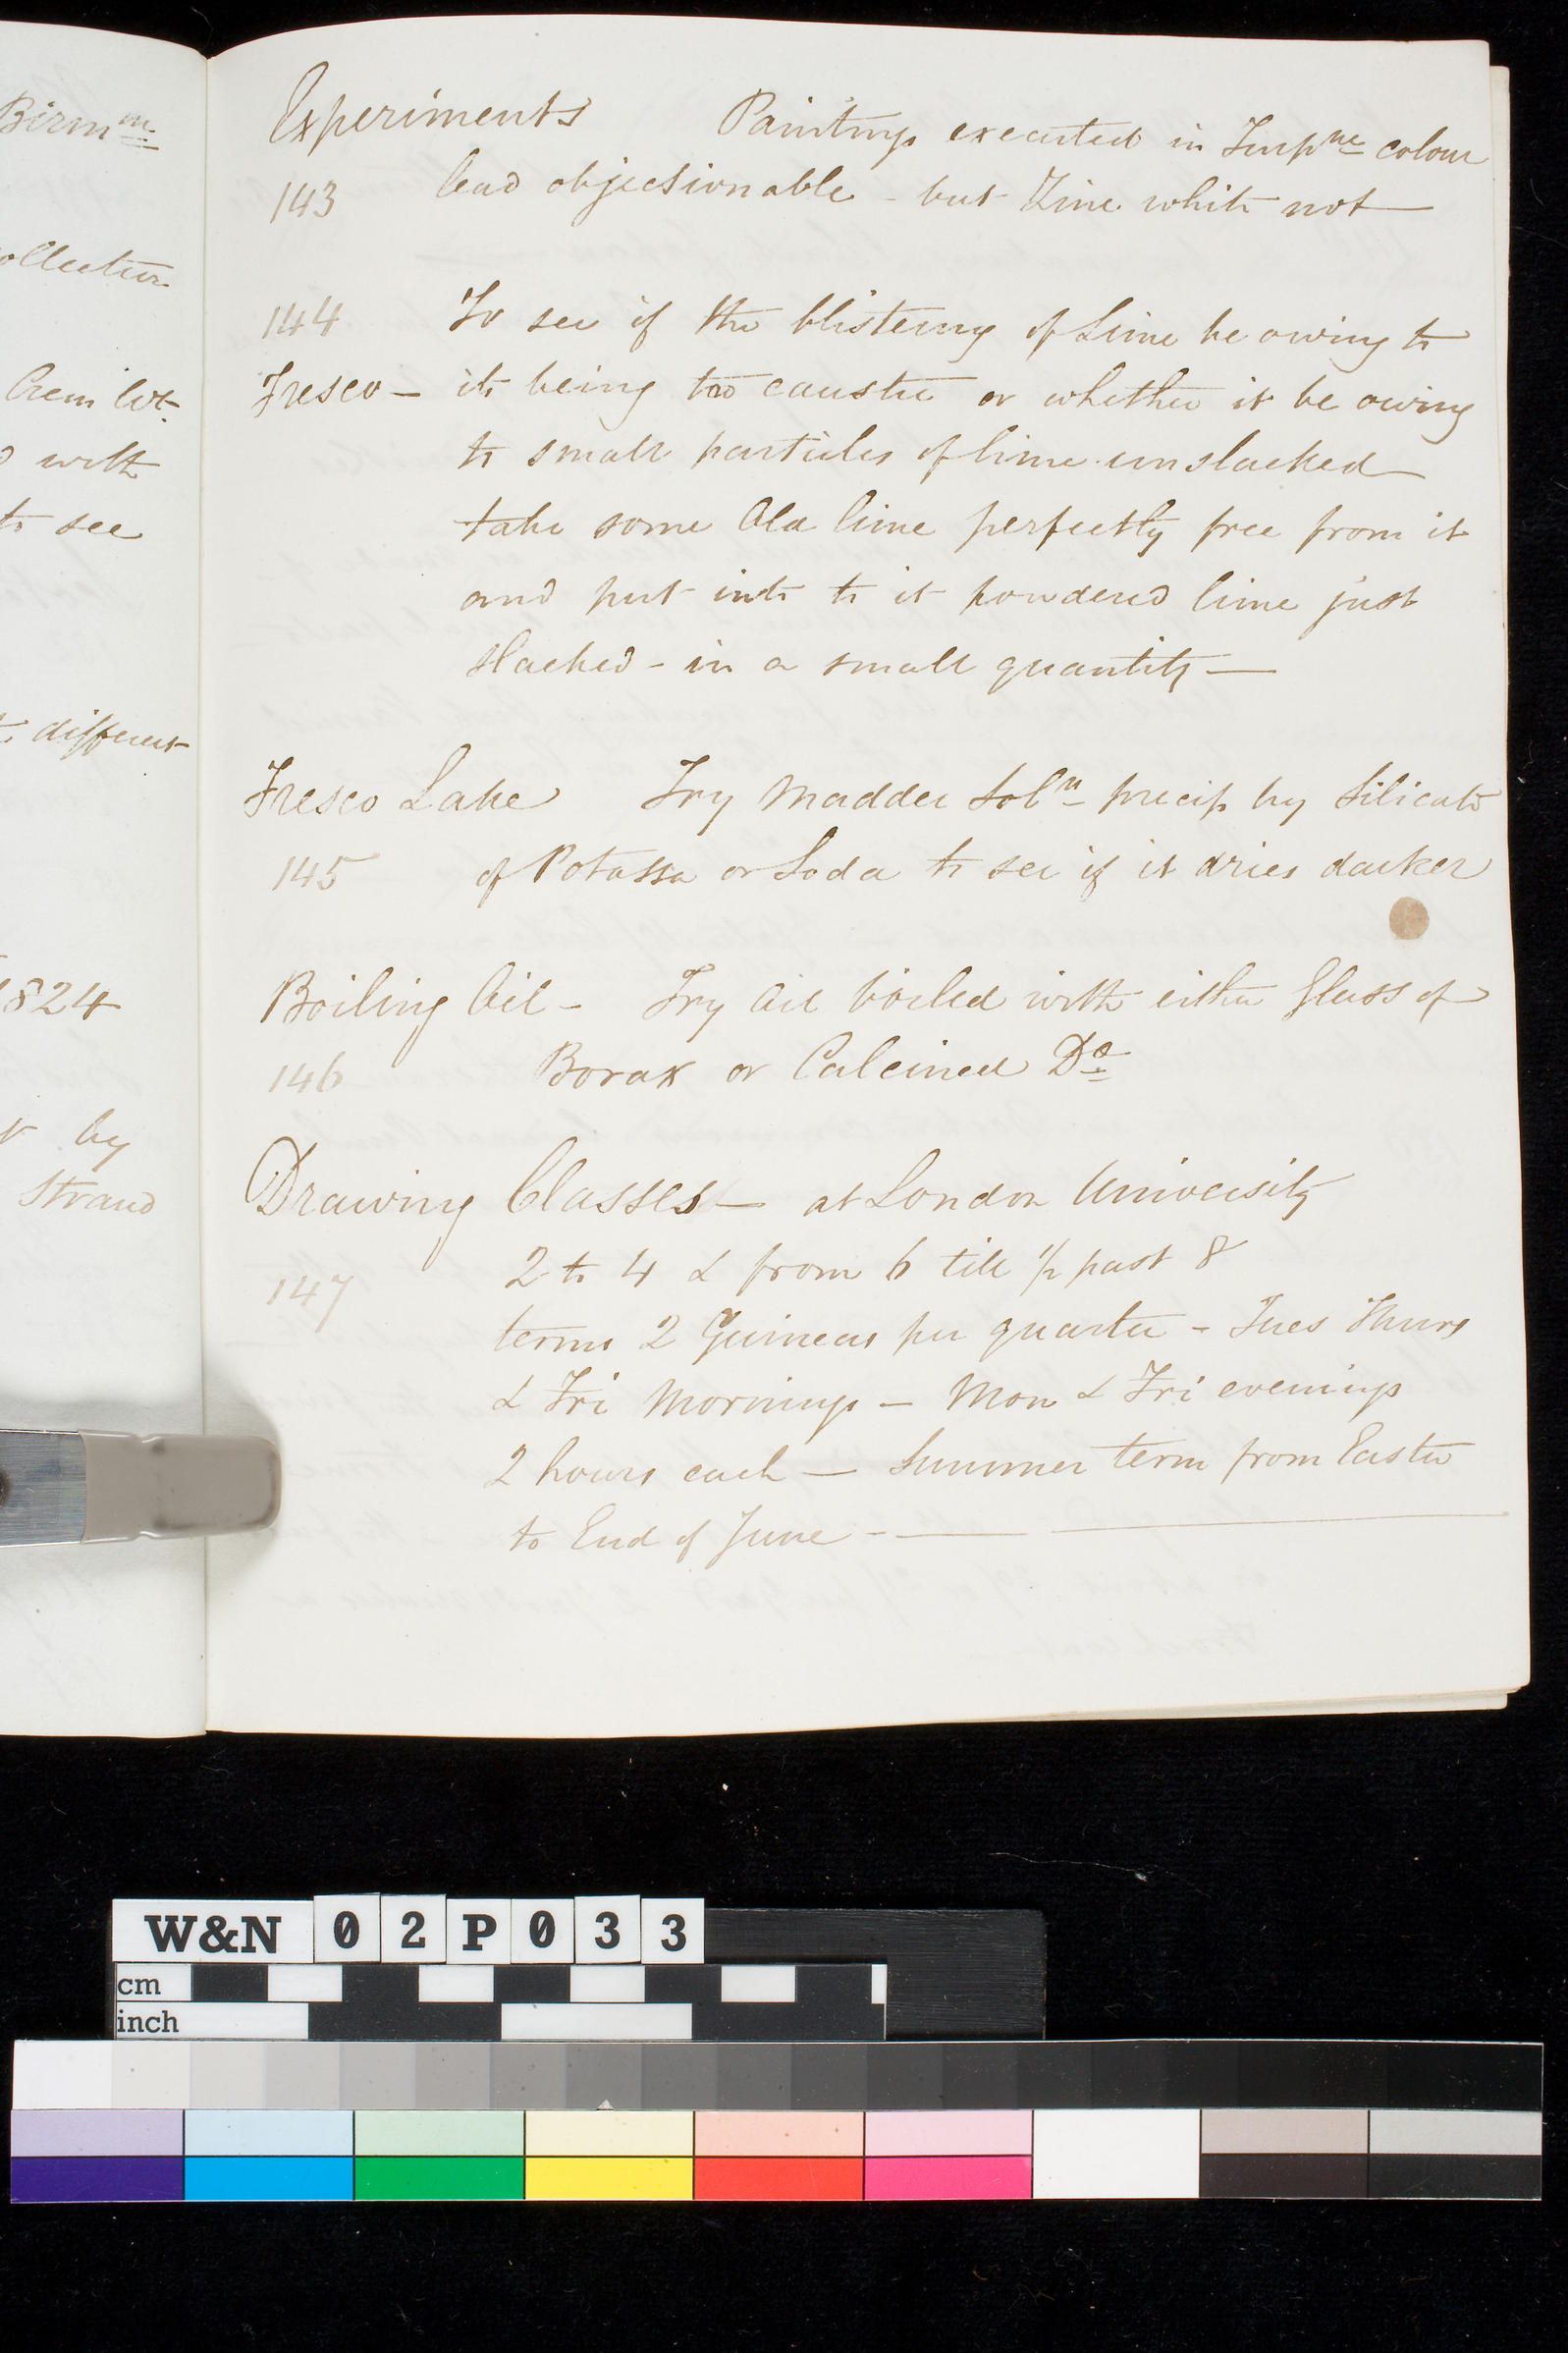 Birmm
ollection
Crem Wt.
with
to see
different
1824
by
Strand
Experiments Paintings executed in Turpne colour
143 lead objectionable - but Zinc white not —
144 To see if the blistering of Lime be owing to
Fresco — its being too caustic or whether it be owing
to small particles of lime unslacked —
take some Old lime perfectly free from it
and put into to it powdered lime just
slacked - in a small quantity —
Fresco Lake Try Madder Soln precip by Silicate
145 of Potassa or Soda to see if it dries darker
Boiling Oil - Try Oil boiled with either Glass of
146 Borax or Calcined Do
Drawing Classes — at London University
2 to 4 & from 6 till 1/2 past 8
147
terms 2 Guineas per quarter - Tues Thurs
& Fri Mornings — Mon & Fri evenings
2 hours each — Summer term from Easter
to End of June - —
W&N 02P033
cm
inch